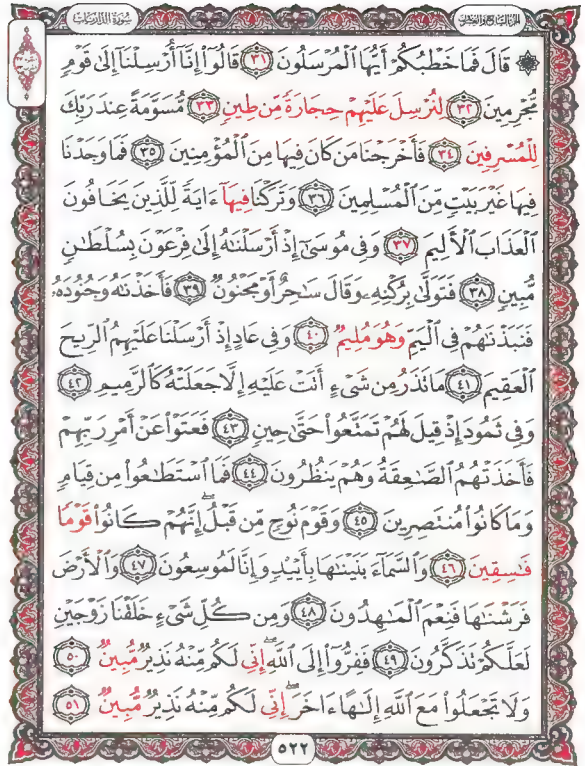 الجزء السابع والعشرون
سورة الذاريات
۞ قَالَ فَمَا خَطْبُكُمْ أَيُّهَا الْمُرْسَلُونَ ﴿٣١﴾ قَالُوٓا۟ إِنَّآ أُرْسِلْنَآ إِلَىٰ قَوْمٍ
مُّجْرِمِينَ ﴿٣٢﴾ لِنُرْسِلَ عَلَيْهِمْ حِجَارَةً مِّن طِينٍ ﴿٣٣﴾ مُّسَوَّمَةً عِندَ رَبِّكَ
لِلْمُسْرِفِينَ ﴿٣٤﴾ فَأَخْرَجْنَا مَن كَانَ فِيهَا مِنَ الْمُؤْمِنِينَ ﴿٣٥﴾ فَمَا وَجَدْنَا
فِيهَا غَيْرَ بَيْتٍ مِّنَ الْمُسْلِمِينَ ﴿٣٦﴾ وَتَرَكْنَا فِيهَآ ءَايَةً لِّلَّذِينَ يَخَافُونَ
الْعَذَابَ الْأَلِيمَ ﴿٣٧﴾ وَفِى مُوسَىٰٓ إِذْ أَرْسَلْنَٰهُ إِلَىٰ فِرْعَوْنَ بِسُلْطَٰنٍ
مُّبِينٍ ﴿٣٨﴾ فَتَوَلَّىٰ بِرُكْنِهِۦ وَقَالَ سَٰحِرٌ أَوْ مَجْنُونٌ ﴿٣٩﴾ فَأَخَذْنَٰهُ وَجُنُودَهُۥ
فَنَبَذْنَٰهُمْ فِى الْيَمِّ وَهُوَ مُلِيمٌ ﴿٤٠﴾ وَفِى عَادٍ إِذْ أَرْسَلْنَا عَلَيْهِمُ الرِّيحَ
الْعَقِيمَ ﴿٤١﴾ مَا تَذَرُ مِن شَىْءٍ أَتَتْ عَلَيْهِ إِلَّا جَعَلَتْهُ كَالرَّمِيمِ ﴿٤٢﴾
وَفِى ثَمُودَ إِذْ قِيلَ لَهُمْ تَمَتَّعُوا۟ حَتَّىٰ حِينٍ ﴿٤٣﴾ فَعَتَوْا۟ عَنْ أَمْرِ رَبِّهِمْ
فَأَخَذَتْهُمُ الصَّٰعِقَةُ وَهُمْ يَنظُرُونَ ﴿٤٤﴾ فَمَا اسْتَطَٰعُوا۟ مِن قِيَامٍ
وَمَا كَانُوا۟ مُنتَصِرِينَ ﴿٤٥﴾ وَقَوْمَ نُوحٍ مِّن قَبْلُ ۖ إِنَّهُمْ كَانُوا۟ قَوْمًا
فَٰسِقِينَ ﴿٤٦﴾ وَالسَّمَآءَ بَنَيْنَٰهَا بِأَيْي۟دٍ وَإِنَّا لَمُوسِعُونَ ﴿٤٧﴾ وَالْأَرْضَ
فَرَشْنَٰهَا فَنِعْمَ الْمَٰهِدُونَ ﴿٤٨﴾ وَمِن كُلِّ شَىْءٍ خَلَقْنَا زَوْجَيْنِ
لَعَلَّكُمْ تَذَكَّرُونَ ﴿٤٩﴾ فَفِرُّوٓا۟ إِلَى اللَّهِ ۖ إِنِّى لَكُم مِّنْهُ نَذِيرٌ مُّبِينٌ ﴿٥٠﴾
وَلَا تَجْعَلُوا۟ مَعَ اللَّهِ إِلَٰهًا ءَاخَرَ ۖ إِنِّى لَكُم مِّنْهُ نَذِيرٌ مُّبِينٌ ﴿٥١﴾
٥٢٢